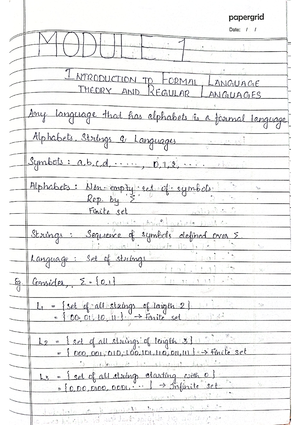 papergrid
Date: / /
MODULE 1
INTRODUCTION TO FORMAL LANGUAGE
THEORY AND REGULAR LANGUAGES
Any language that has alphabets is a formal language
Alphabets, Strings & Languages
Symbols : a,b,c,d, ......, 0,1,2, ....
Alphabets : Non-empty set of symbols
Rep. by Σ
Finite set
Strings : Sequence of symbols defined over Σ
Language : Set of strings
Eg Consider, Σ = {0,1}
L₁ = { set of all strings of length 2 }
= { 00, 01, 10, 11 } → finite set
L₂ = { set of all strings of length 3 }
= { 000, 001, 010, 100, 101, 110, 011, 111 } → finite set
L₃ = { set of all strings starting with 0 }
= { 0, 00, 000, 0001, ..... } → Infinite set